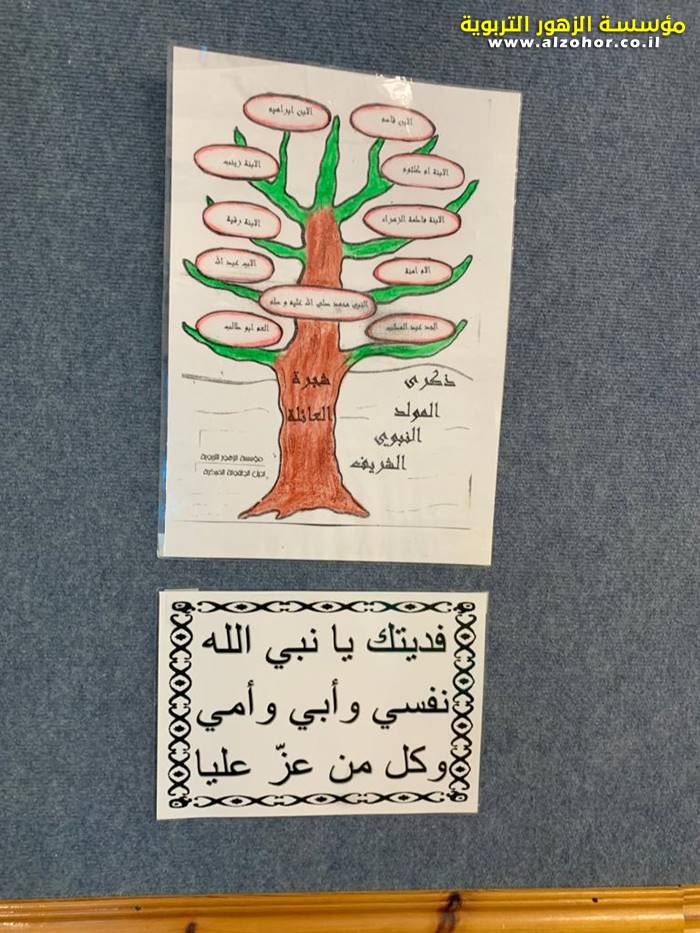 مؤسسة الزهور التربوية
www.alzohor.co.il
الابن ابراهيم
الابن قاسم
الابنة زينب
الابنة ام كلثوم
الابنة رقية
الابنة فاطمة الزهراء
الاب عبد الله
الام امنة
النبي محمد صلى الله عليه و سلم
العم ابو طالب
الجد عبد المطلب
شجرة
العائلة
ذكرى
المولد
النبوي
الشريف
مؤسسة الزهور التربوية
لجيل الطفولة المبكرة
فديتك يا نبي الله
نفسي وأبي وأمي
وكل من عزّ عليا